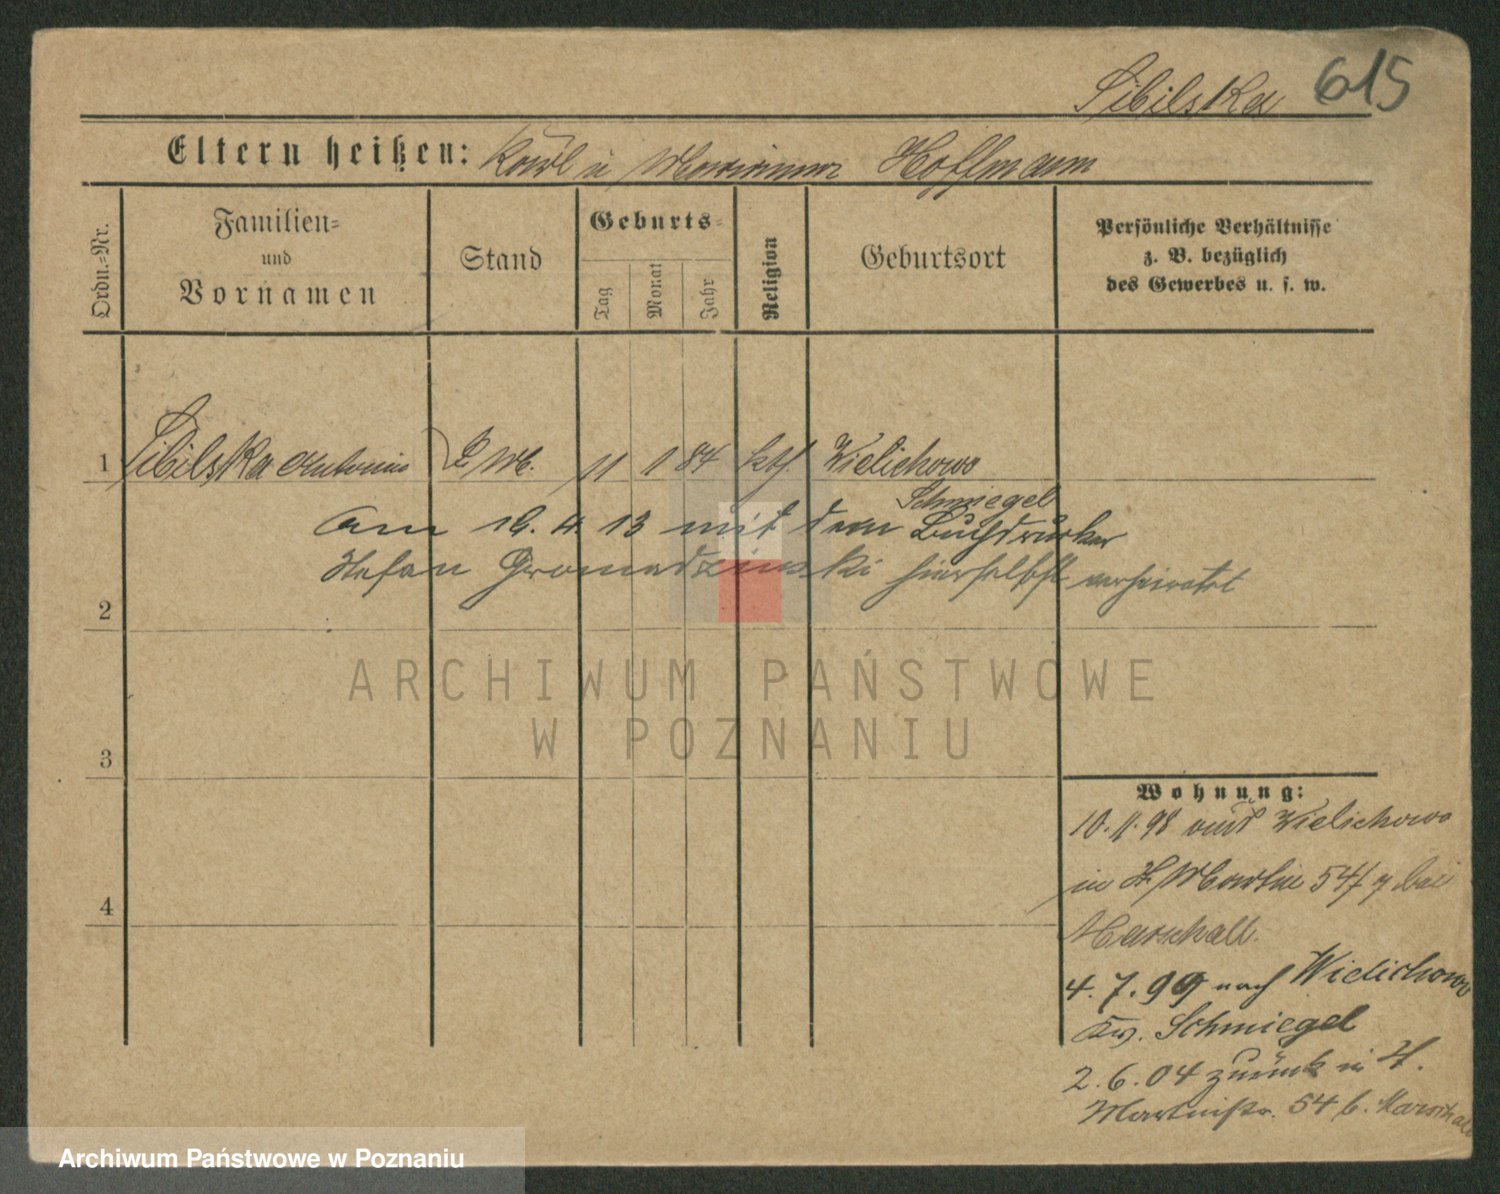 Sibilska 615
Eltern heißen: Karl u Marianna Hoffmann
Ordn.=Nr.
Familien=
und
Vornamen
Stand
Geburts=
Tag
Monat
Jahr
Religion
Geburtsort
Persönliche Verhältnisse
z. B. bezüglich
des Gewerbes u. s. w.
1 Sibilska Antonie 11 1 84 kth. Wielichowo
Schmiegel
am 16. 4. 13 mit dem Buchdrucker
Stefan Gromadzinski hierselbst verheiratet
2
3
4
ARCHIWUM PAŃSTWOWE
W POZNANIU
Wohnung:
10. 11. 98 aus Wielichowo
in St Martin 54/ bei
Marschall.
4. 7. 99 nach Wielichowo
Krs. Schmiegel
2. 6. 04 zurück in St.
Martinstr. 54 b. Marschall
Archiwum Państwowe w Poznaniu